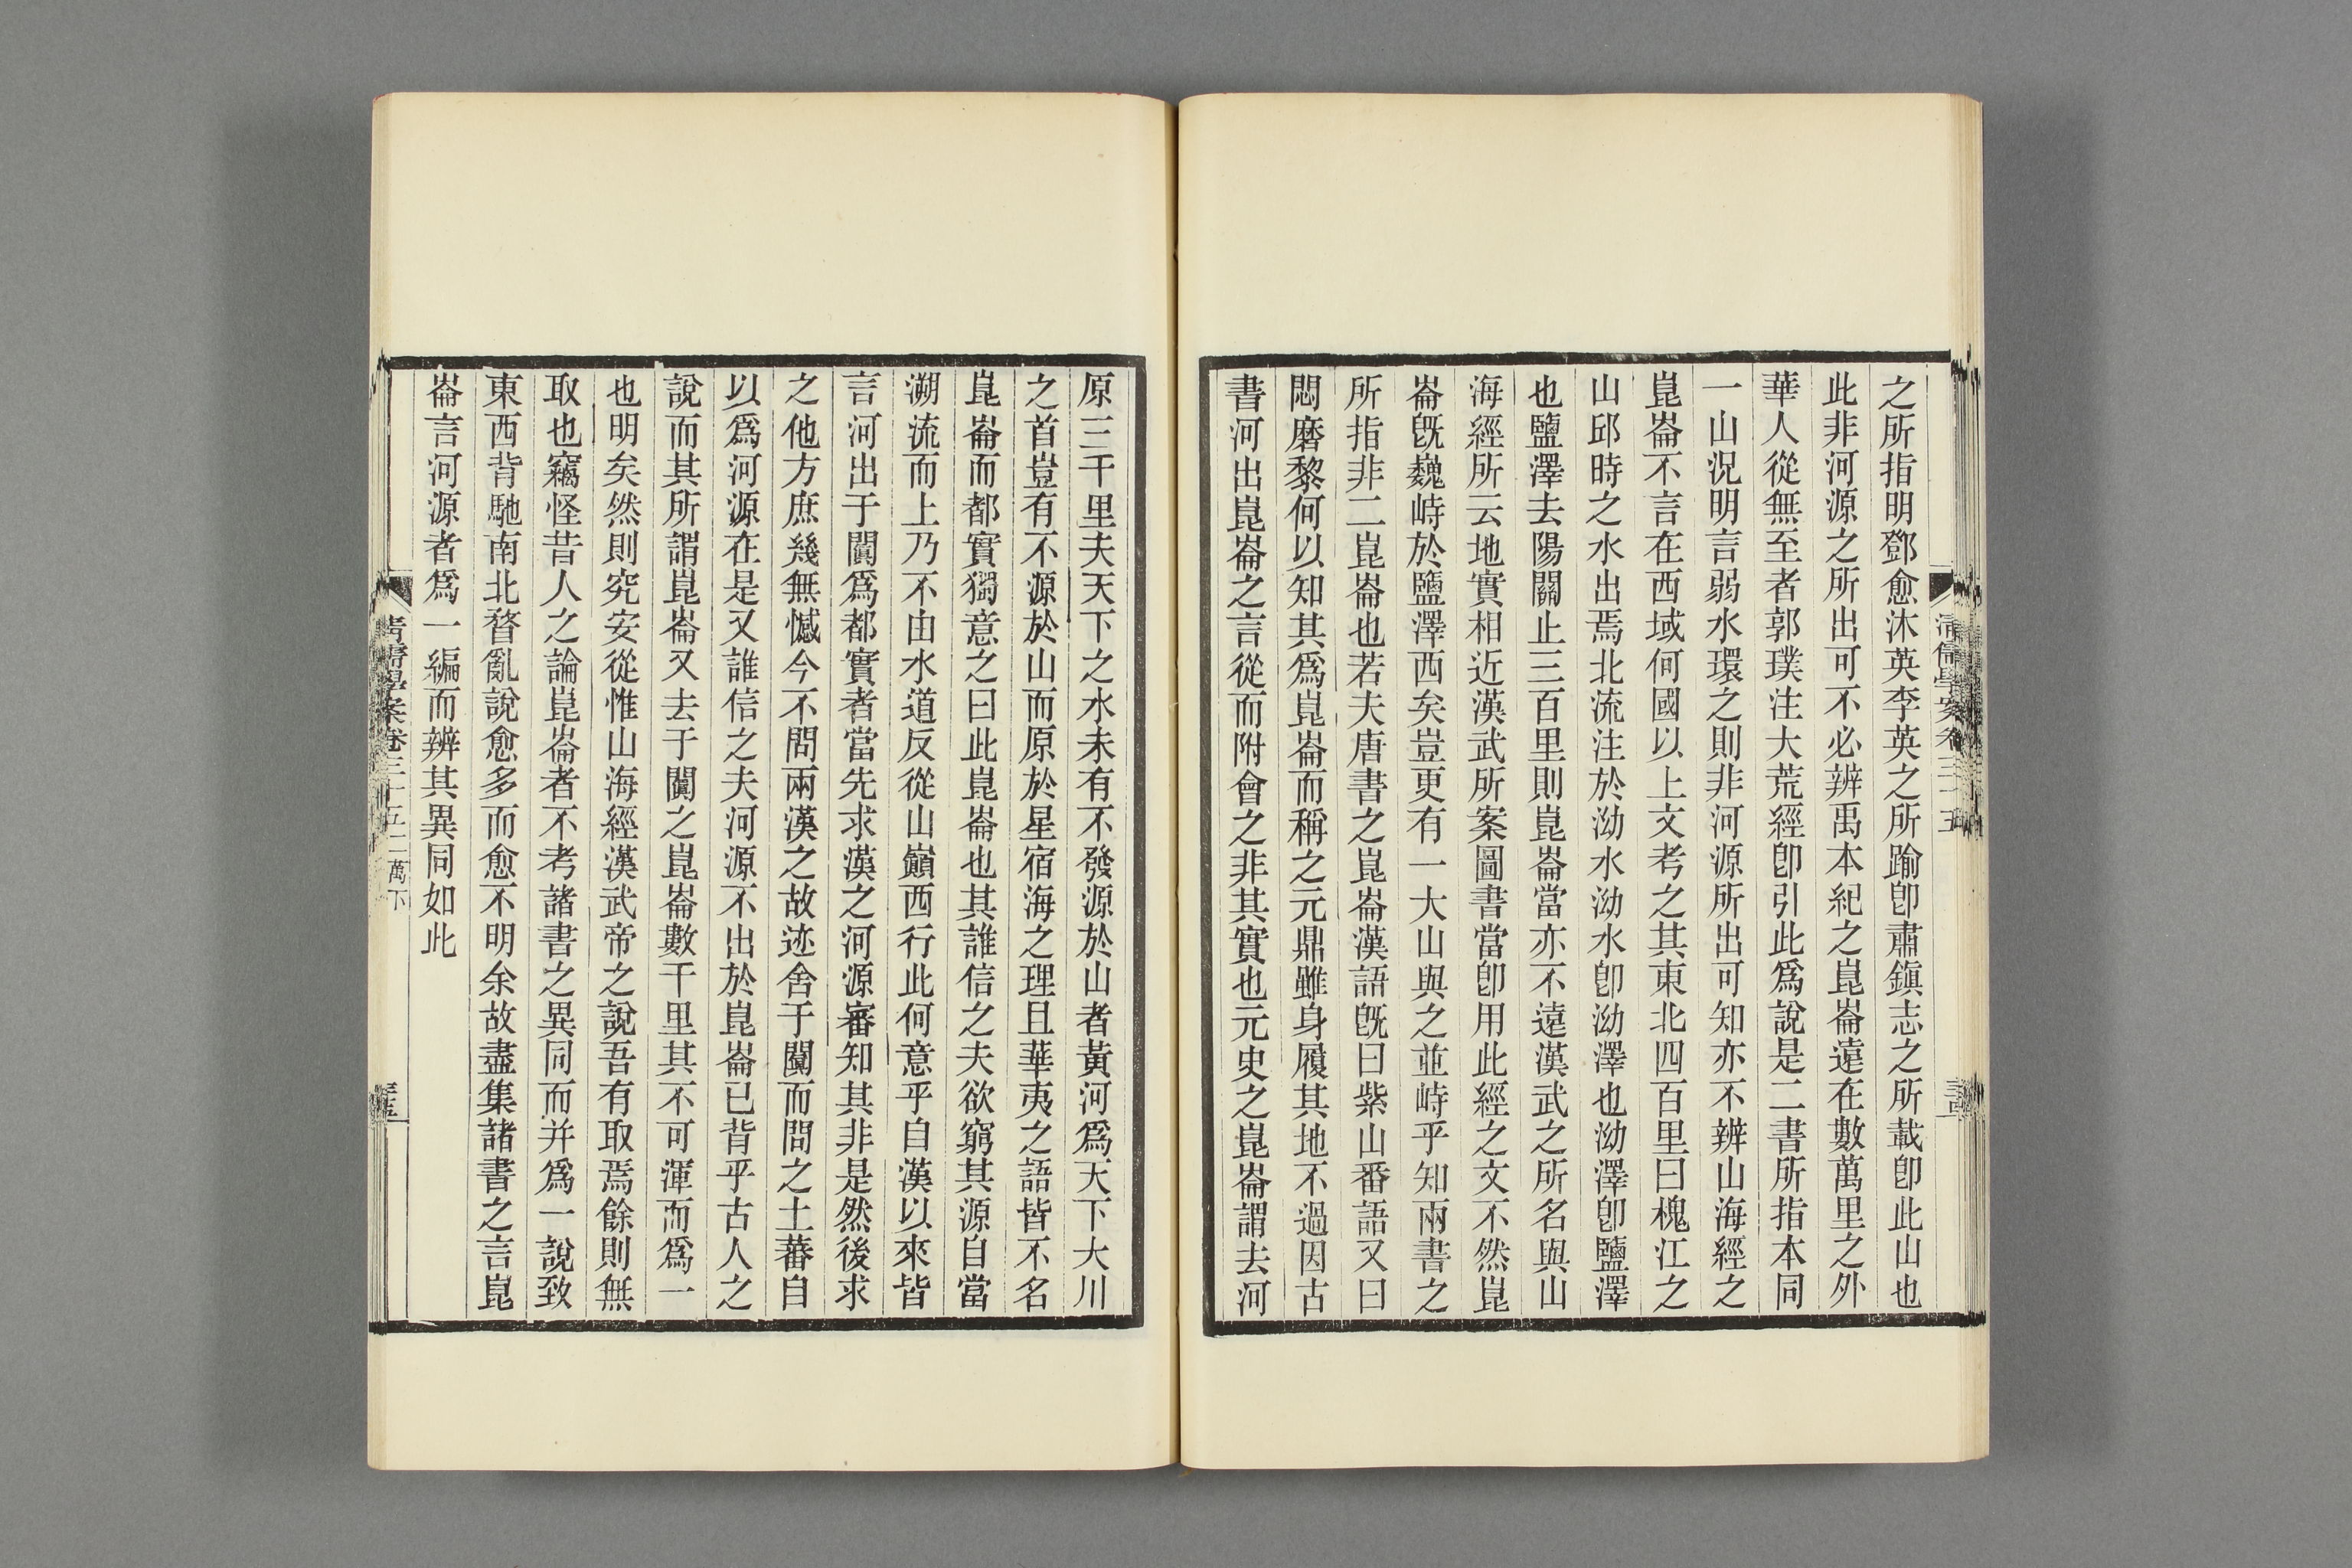 之所指明鄧愈沐英李英之所踰卽肅鎭志之所載卽此山也
此非河源之所出可不必辨禹本紀之崑崙遠在數萬里之外
華人從無至者郭璞注大荒經卽引此爲說是二書所指本同
一山況明言弱水環之則非河源所出可知亦不辨山海經之
崑崙不言在西域何國以上文考之其東北四百里曰槐江之
山邱時之水出焉北流注於泑水泑水卽泑澤也泑澤卽鹽澤
也鹽澤去陽關止三百里則崑崙當亦不遠漢武之所名與山
海經所云地實相近漢武所案圖書當卽用此經之文不然崑
崙旣巍峙於鹽澤西矣豈更有一大山與之並峙乎知兩書之
所指非二崑崙也若夫唐書之崑崙漢語旣曰紫山番語又曰
悶磨黎何以知其爲崑崙而稱之元鼎雖身履其地不過因古
書河出崑崙之言從而附會之非其實也元史之崑崙謂去河
原三千里夫天下之水未有不發源於山者黃河爲天下大川
之首豈有不源於山而原於星宿海之理且華夷之語皆不名
崑崙而都實獨意之曰此崑崙也其誰信之夫欲窮其源自當
溯流而上乃不由水道反從山巓西行此何意乎自漢以來皆
言河出于闐爲都實者當先求漢之河源審知其非是然後求
之他方庶幾無憾今不問兩漢之故迹舍于闐而問之土蕃自
以爲河源在是又誰信之夫河源不出於崑崙已背乎古人之
說而其所謂崑崙又去于闐之崑崙數千里其不可渾而爲一
也明矣然則究安從惟山海經漢武帝之說吾有取焉餘則無
取也竊怪昔人之論崑崙者不考諸書之異同而并爲一說致
東西背馳南北瞀亂說愈多而愈不明余故盡集諸書之言崑
崙言河源者爲一編而辨其異同如此
清儒學案卷三十五 二萬下